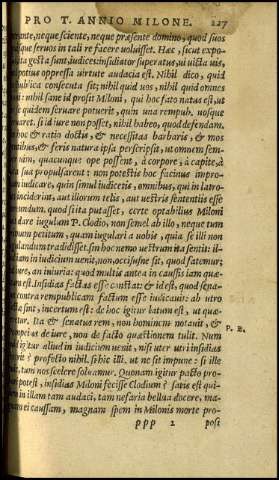 PRO T. ANNIO MILONE. 227
rante, neque sciente, neque præsente domino, quod suos
que seruos in tali re facere uoluisset. Hæc, sicut expo
ita gesta sunt, iudices: insidiator superatus, ui uicta uis,
potius oppressa uirtute audacia est. Nihil dico, quid
ublica consecuta sit: nihil quid uos, nihil quid omnes
ni: nihil sane id prosit Miloni, qui hoc fato natus est, ut
e quidem seruare potuerit, quin una rempub. uosque
ret. si id iure non posset, nihil habeo, quod defendam.
hoc & ratio doctis, & necessitas barbaris, & mos
tibus, & feris natura ipsa perscripsit, ut omnem sem-
nim, quacunque ope possent, à corpore, à capite, à
sua propulsarent: non potestis hoc facinus impro-
iudicare, quin simul iudicetis, omnibus, qui in latro-
inciderint, aut illorum telis, aut uestris sententiis esse
undum. quod si ita putasset, certe optabilius Miloni
dare iugulum P. Clodio, non semel ab illo, neque tum
um petitum, quam iugulari a uobis, quia se illi non
landum tradidisset. sin hoc nemo uestrum ita sentit: il-
iam in iudicium uenit, non, occisusne sit, quod fatemur;
iure, an iniuria: quod multis antea in caussis iam quæ-
est. Insidias factas esse constat: & id est, quod sena-
contra rempublicam factum esse iudicauit: ab utro
sint, incertum est: de hoc igitur latum est, ut quæ-
etur. Ita & senatus rem, non hominem notauit, &
P. R.
peius de iure, non de facto quæstionem tulit. Num
igitur aliud in iudicium uenit, nisi uter utri insidias
rit? profecto nihil. si hic illi, ut ne sit impune: si ille
ut tum nos scelere soluamur. Quonam igitur pacto pro-
potest, insidias Miloni fecisse Clodium? satis est qui-
in illam tam audaci, tam nefaria bellua docere, ma-
ei caussam, magnam spem in Milonis morte pro-
ppp 2 posi